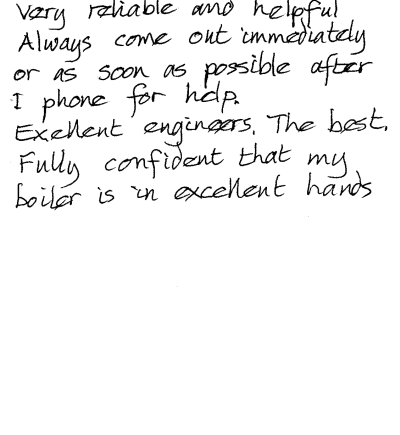 Very reliable and helpful
Always come out immediately
or as soon as possible after
I phone for help.
Exellent engineers. The best.
Fully confident that my
boiler is in excellent hands